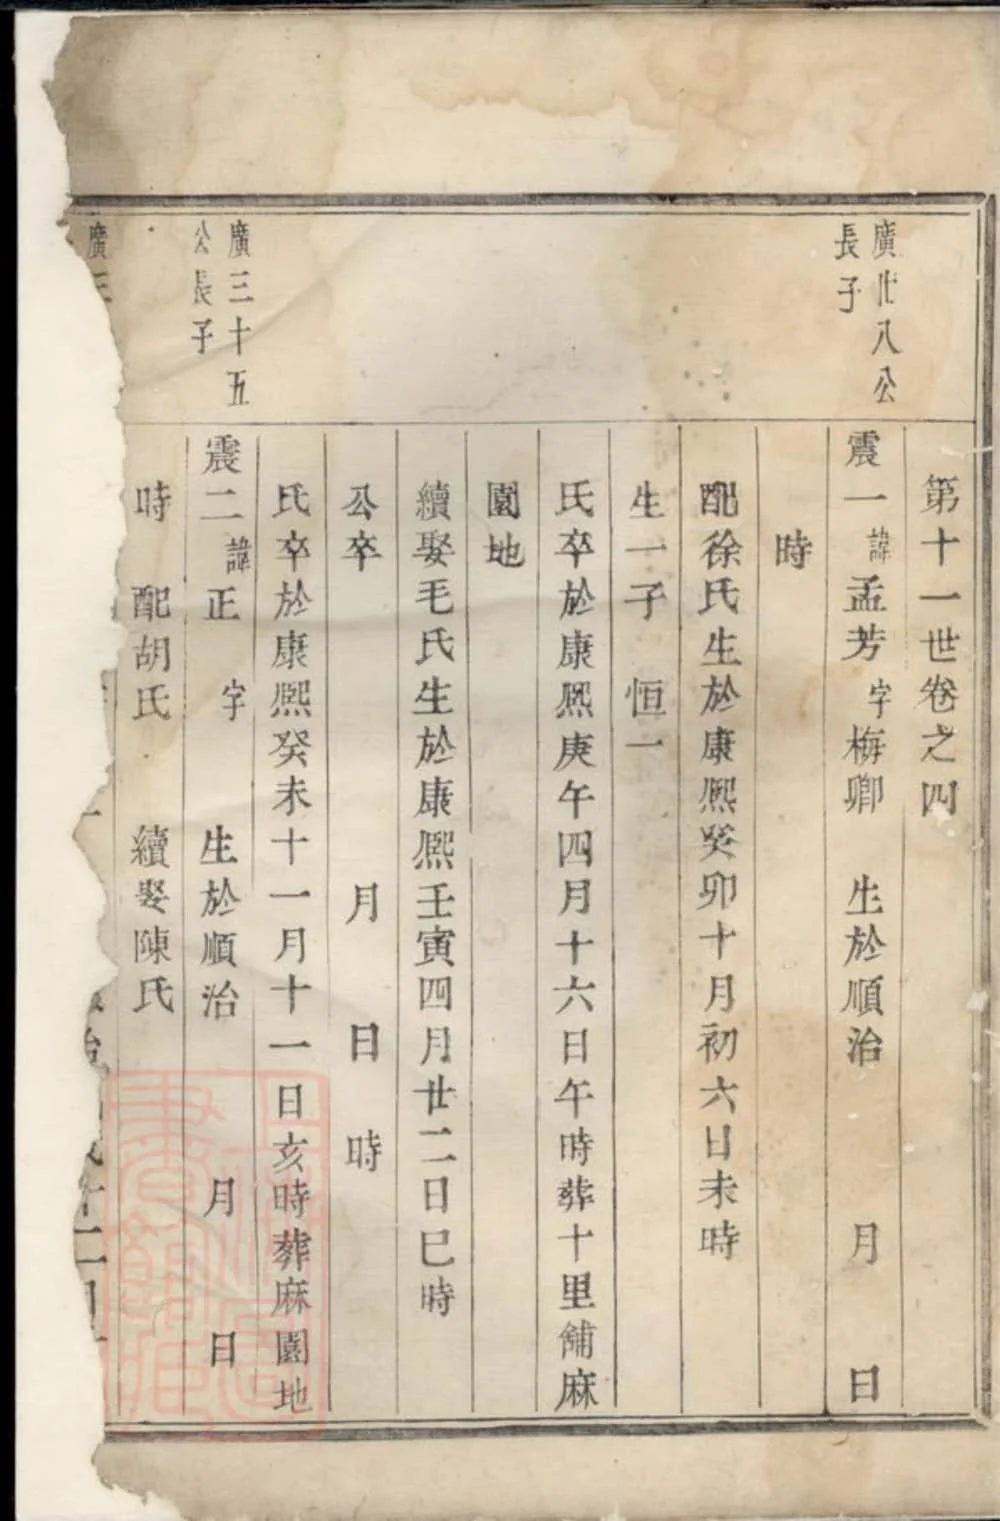 第十一世卷之四
廣卅八公
長子
震一諱孟芳字梅卿 生於順治 月 日
時
配徐氏生於康熙癸卯十月初六日未時
生一子 恒一
氏卒於康熙庚午四月十六日午時葬十里舖麻
園地
續娶毛氏生於康熙壬寅四月廿二日巳時
公卒 月 日 時
氏卒於康熙癸未十一月十一日亥時葬麻園地
廣三十五
公長子
震二諱正 字 生於順治 月 日
時 配胡氏 續娶陳氏
廣三
治 十二月